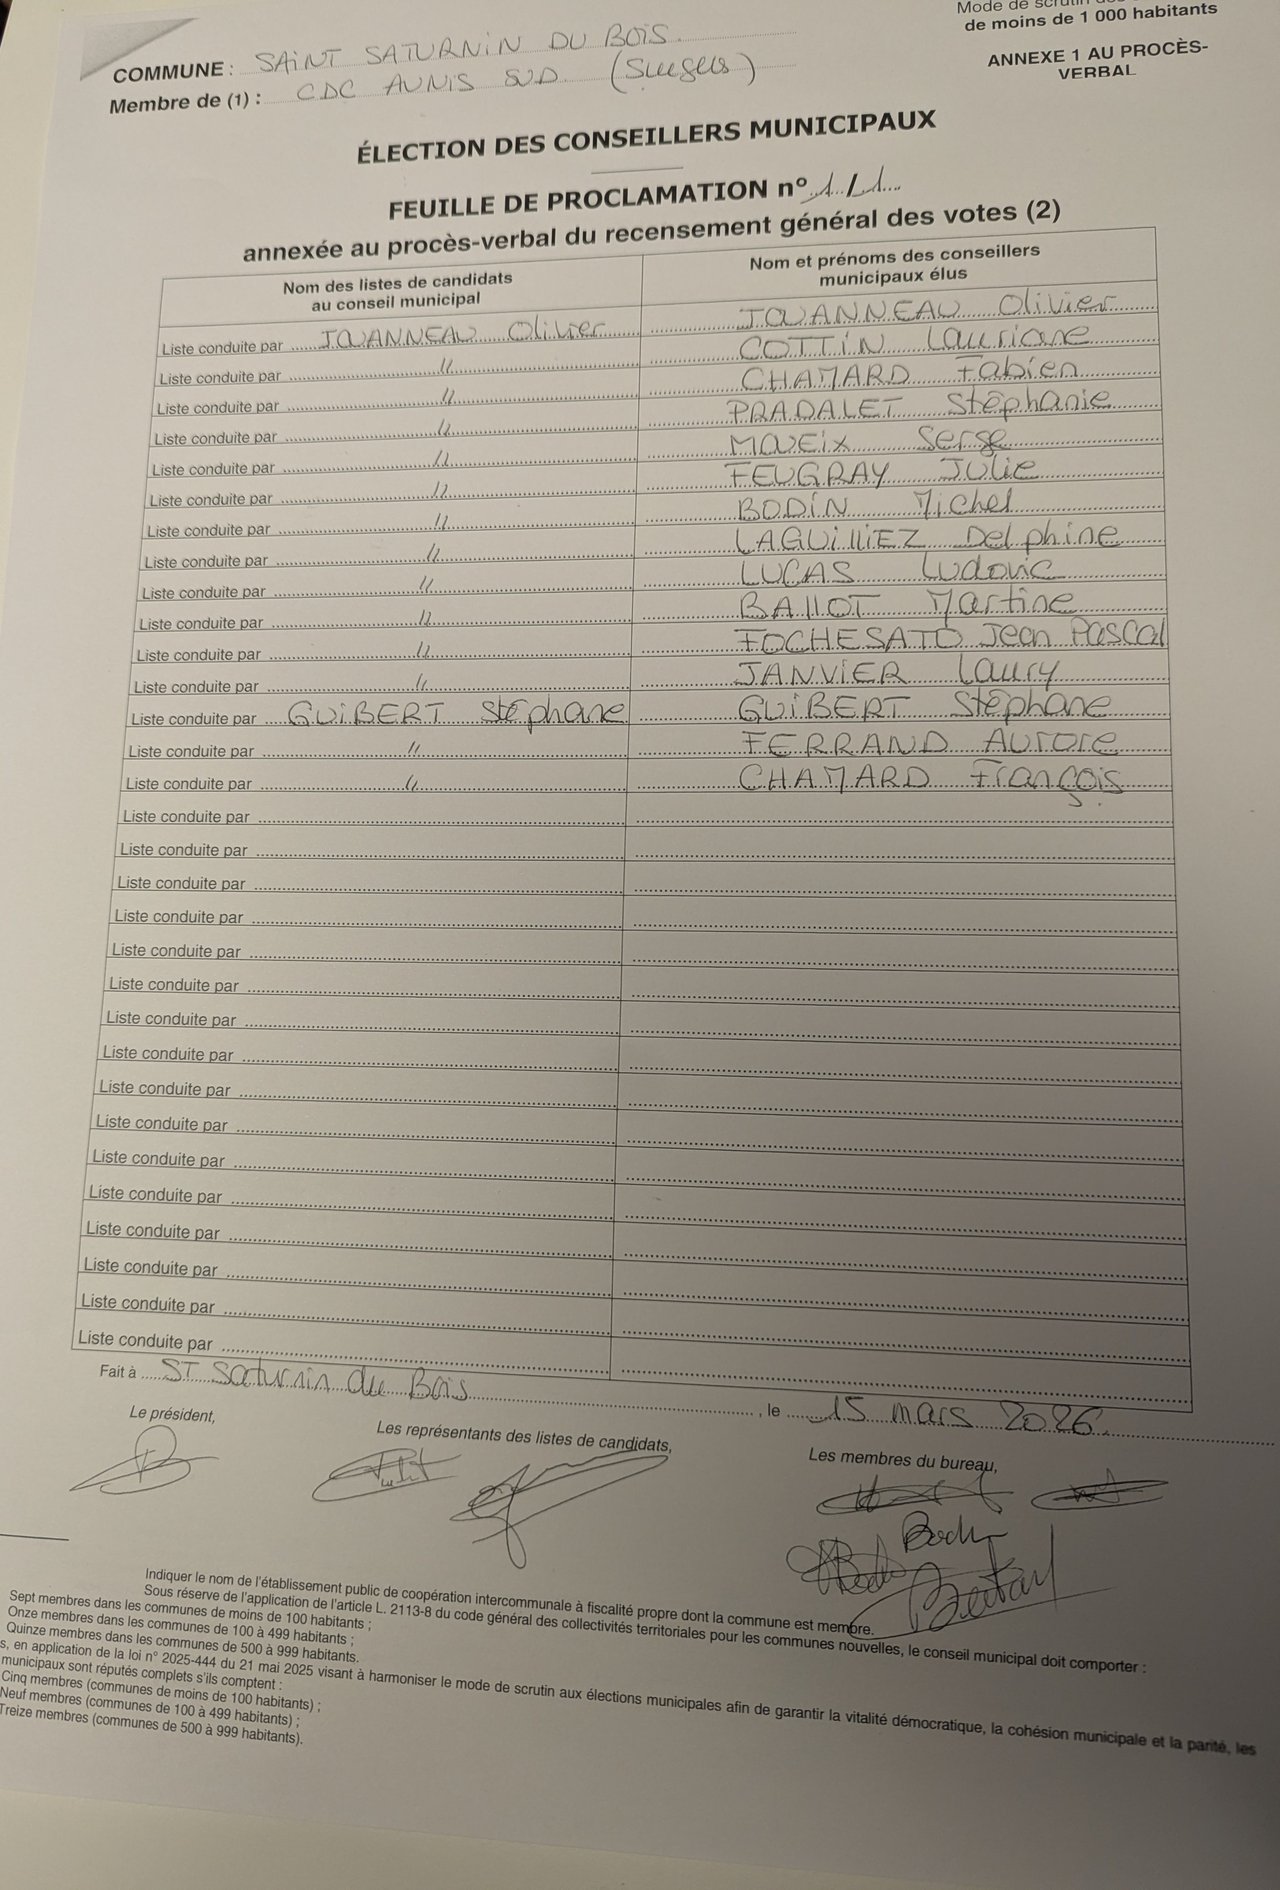 Mode de scrutin des
de moins de 1 000 habitants
ANNEXE 1 AU PROCÈS-
VERBAL
COMMUNE : SAINT SATURNIN DU BOIS.
Membre de (1) : CDC AUNIS SUD (Surgères)
ÉLECTION DES CONSEILLERS MUNICIPAUX
FEUILLE DE PROCLAMATION n° 1/1
annexée au procès-verbal du recensement général des votes (2)
Nom des listes de candidats
au conseil municipal
Nom et prénoms des conseillers
municipaux élus
Liste conduite par JOUANNEAU Olivier JOUANNEAU Olivier
Liste conduite par " COTTIN Lauriane
Liste conduite par " CHAMARD Fabien
Liste conduite par " PRADALET Stéphanie
Liste conduite par " MOUEIX Serge
Liste conduite par " FEUGRAY Julie
Liste conduite par " BODIN Michel
Liste conduite par " LAGUILLIEZ Delphine
Liste conduite par " LUCAS Ludovic
Liste conduite par " BALLOT Martine
Liste conduite par " FOCHESATO Jean Pascal
Liste conduite par " JANVIER Laury
Liste conduite par GUIBERT Stéphane GUIBERT Stéphane
Liste conduite par " FERRAND Aurore
Liste conduite par " CHAMARD François
Liste conduite par
Liste conduite par
Liste conduite par
Liste conduite par
Liste conduite par
Liste conduite par
Liste conduite par
Liste conduite par
Liste conduite par
Liste conduite par
Liste conduite par
Liste conduite par
Liste conduite par
Liste conduite par
Liste conduite par
Liste conduite par
Fait à ST Saturnin du Bois, le 15 mars 2026.
Le président,
Les représentants des listes de candidats,
Les membres du bureau,
Indiquer le nom de l'établissement public de coopération intercommunale à fiscalité propre dont la commune est membre.
Sous réserve de l'application de l'article L. 2113-8 du code général des collectivités territoriales pour les communes nouvelles, le conseil municipal doit comporter :
Sept membres dans les communes de moins de 100 habitants ;
Onze membres dans les communes de 100 à 499 habitants ;
Quinze membres dans les communes de 500 à 999 habitants.
s, en application de la loi n° 2025-444 du 21 mai 2025 visant à harmoniser le mode de scrutin aux élections municipales afin de garantir la vitalité démocratique, la cohésion municipale et la parité, les
municipaux sont réputés complets s'ils comptent :
Cinq membres (communes de moins de 100 habitants) ;
Neuf membres (communes de 100 à 499 habitants) ;
Treize membres (communes de 500 à 999 habitants).